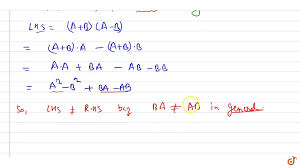 LHS = (A+B) (A-B)
= (A+B)·A - (A+B)·B
= A·A + BA - AB - BB
= A² - B² + BA - AB
So, LHS ≠ RHS bcz BA ≠ AB in general